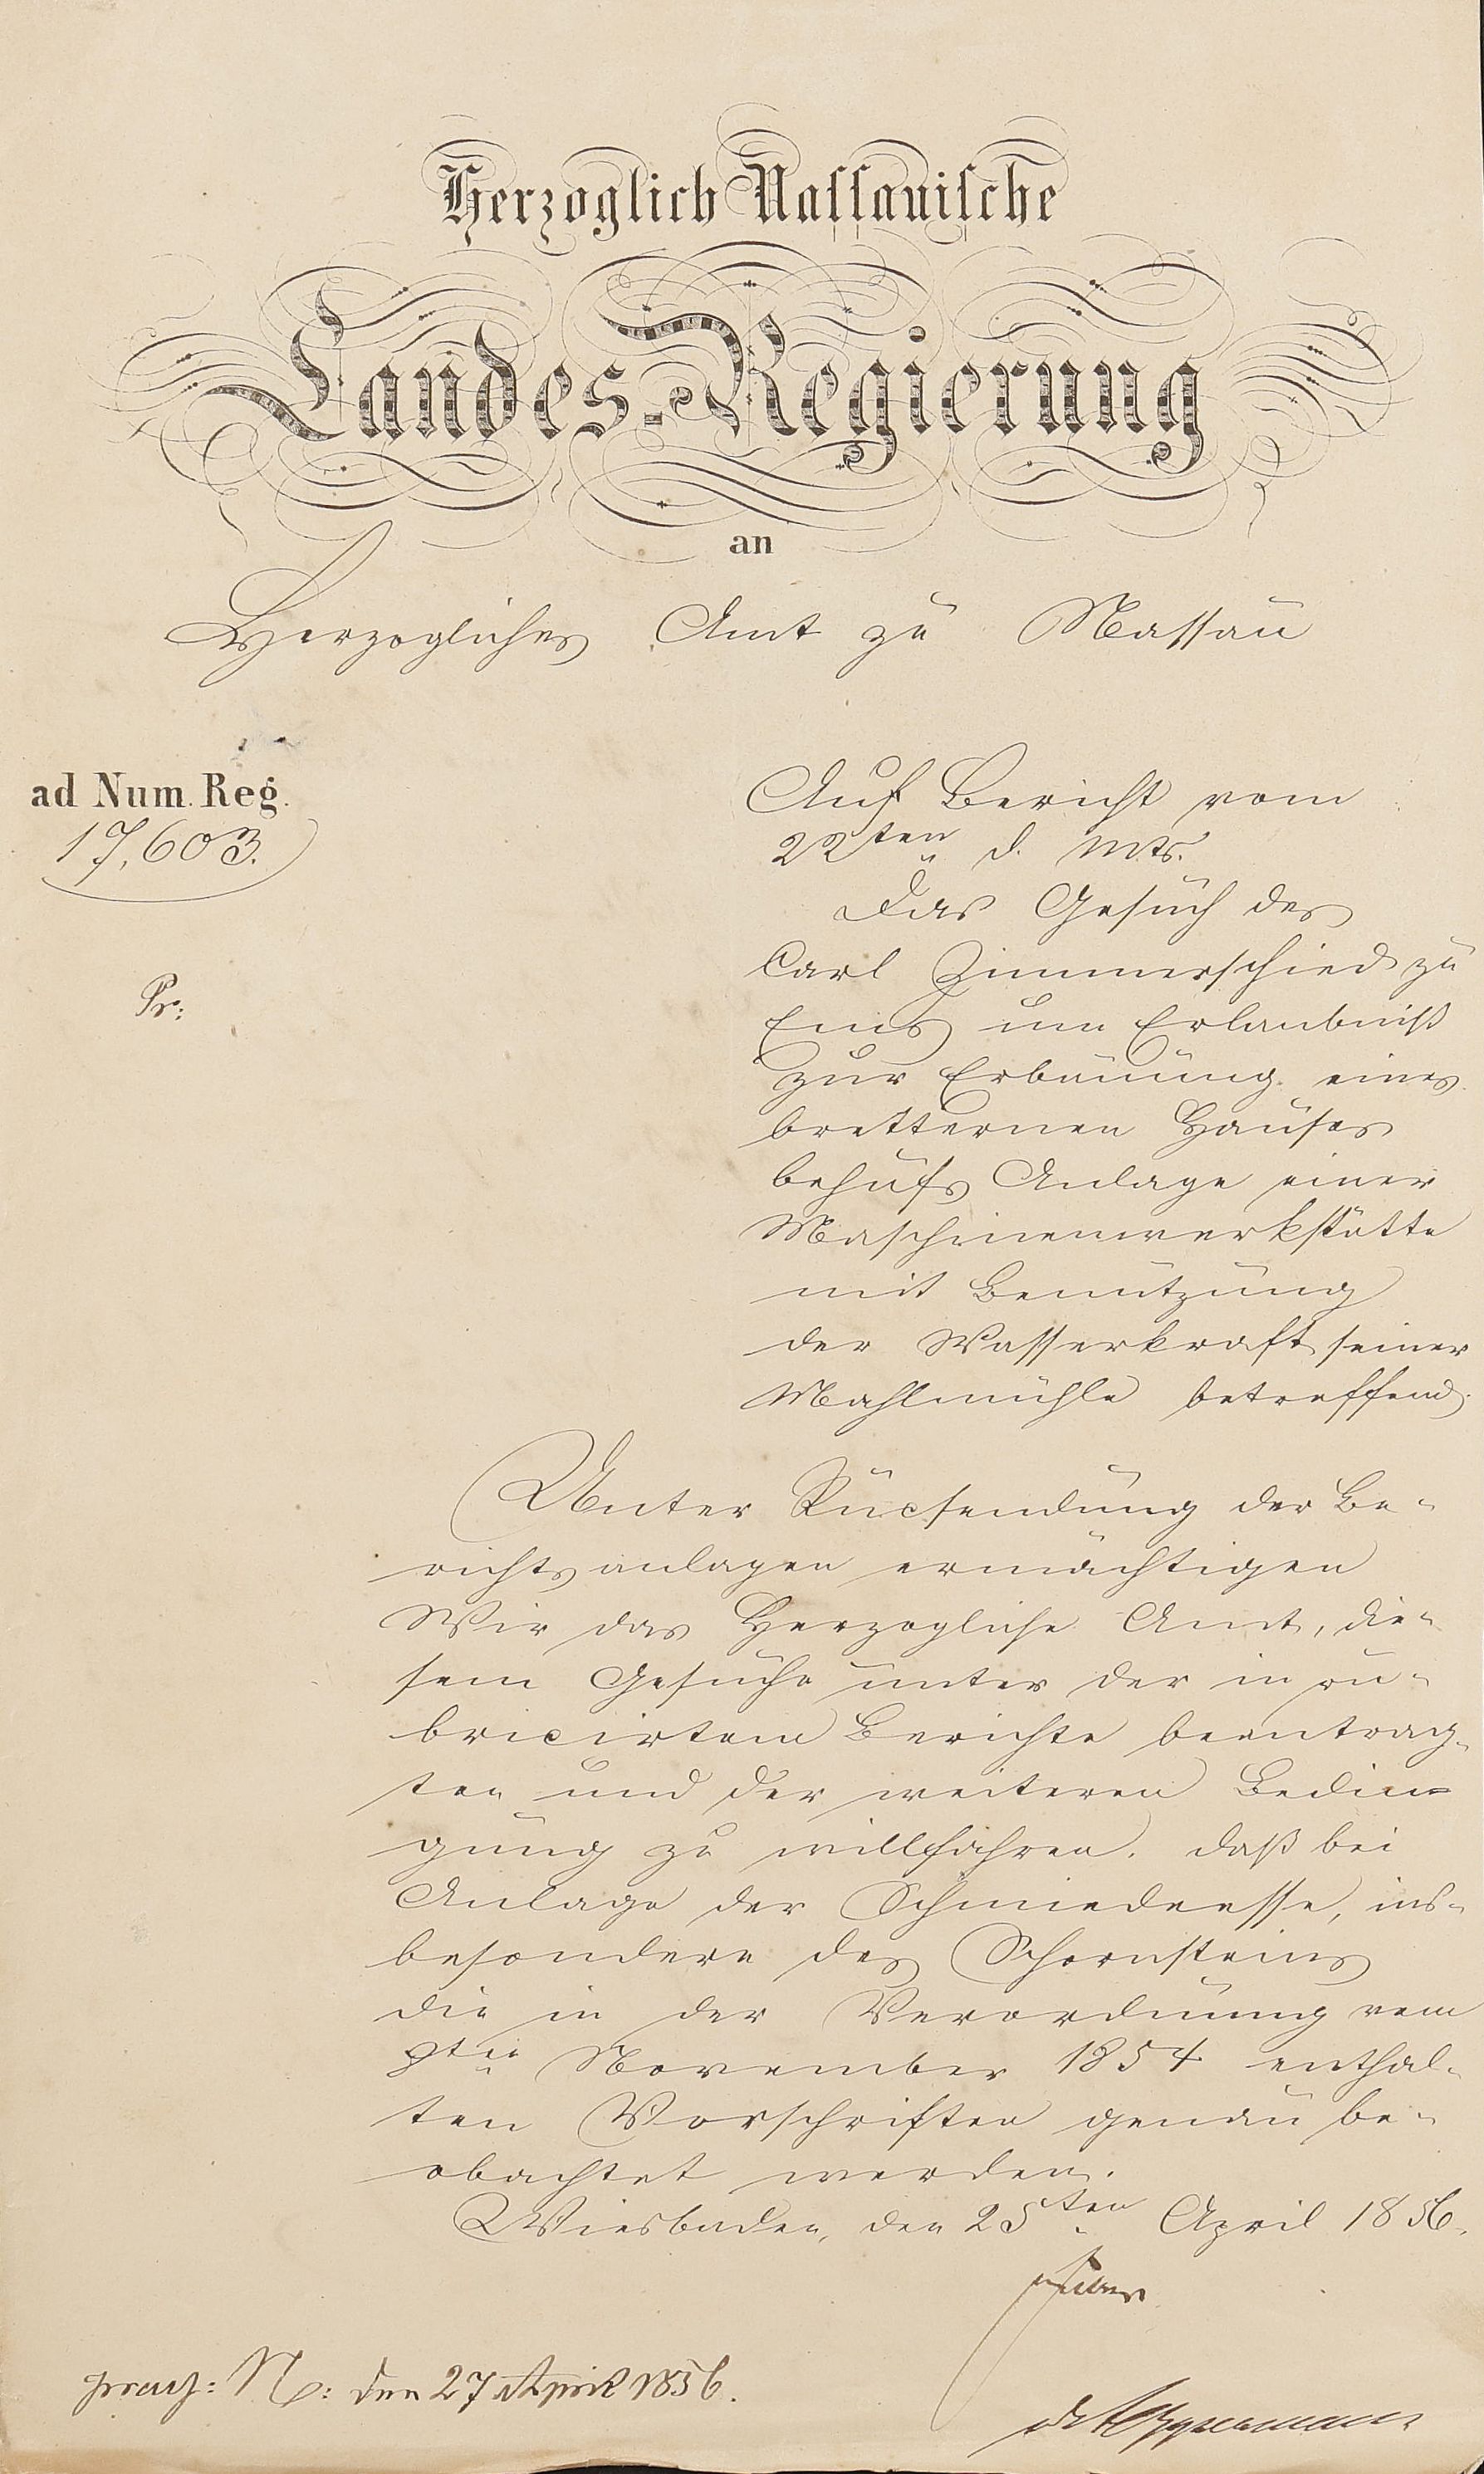 Herzoglich Nassauische
Landes-Regierung
an
Herzogliches Amt zu Nassau
ad Num. Reg.
17,603.
Pr:
Auf Bericht vom
22ten d. Mts.
Das Gesuch des
Carl Zimmerschied zu
Ems um Erlaubniß
zur Erbauung eines
bretternen Hauses
behufs Anlage einer
Maschinenwerkstätte
mit Benutzung
der Wasserkraft seiner
Mahlmühle betreffend.
Unter Rücsendung der Be-
richtsanlagen ermächtigen
Wir das Herzogliche Amt, die-
sem Gesuche unter der in ru-
bricirtem Berichte beantrag-
ten und der weiteren Bedin-
gung zu willfahren, daß bei
Anlage der Schmiedeesse, ins-
besondere des Schornsteins
die in der Verordnung vom
9ten November 1854 enthal-
ten Vorschriften genau be-
obachtet werden.
Wiesbaden, den 25ten April 1856.
praes: N: den 27 April 1856.